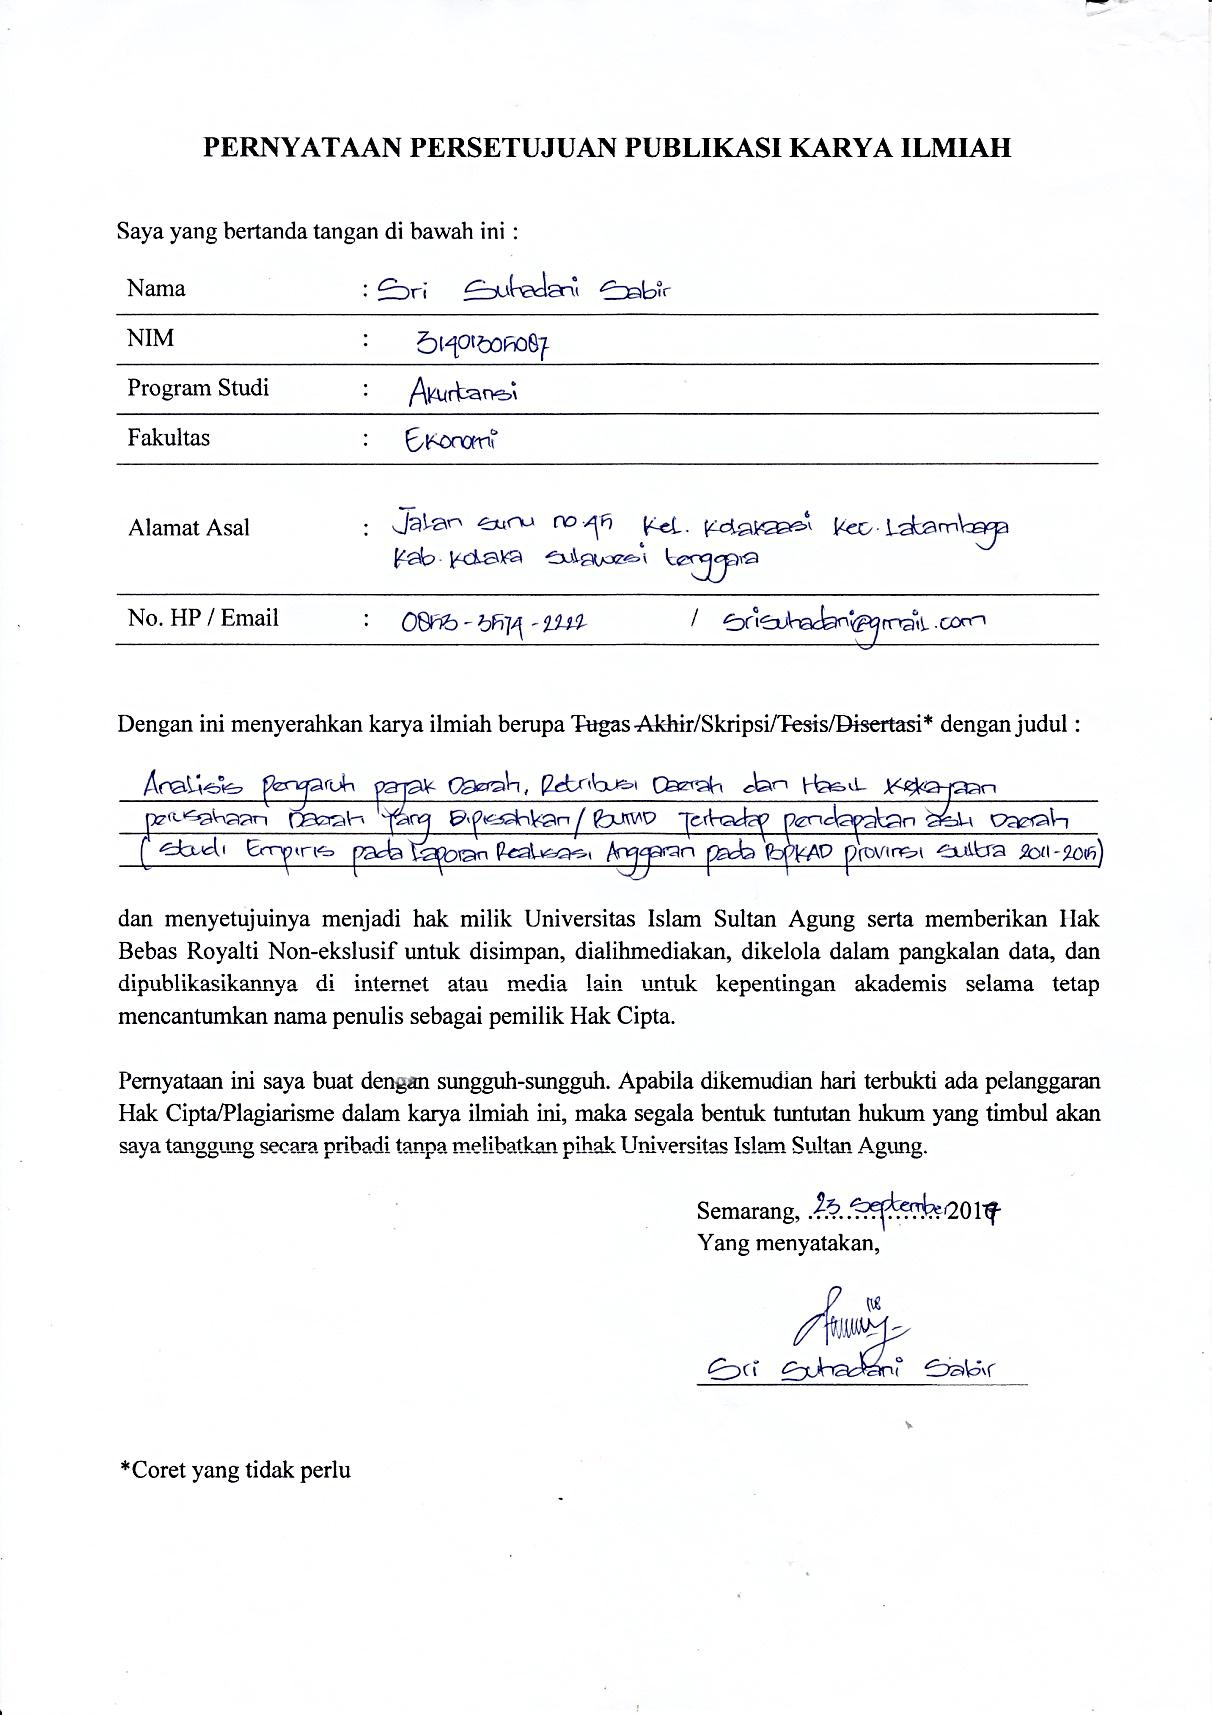 PERNYATAAN PERSETUJUAN PUBLIKASI KARYA ILMIAH
Saya yang bertanda tangan di bawah ini :
Nama : Sri Suhadani Sabir
NIM : 31401305087
Program Studi : Akuntansi
Fakultas : Ekonomi
Alamat Asal : Jalan sunu no.45 Kel. Kolakaasi Kec. Latambaga
Kab. Kolaka Sulawesi tenggara
No. HP / Email : 0853-3574-2222 / srisuhadani@gmail.com
Dengan ini menyerahkan karya ilmiah berupa Tugas Akhir/Skripsi/Tesis/Disertasi* dengan judul :
Analisis Pengaruh pajak Daerah, Retribusi Daerah dan Hasil Kekayaan
perusahaan Daerah Yang Dipisahkan/BUMD Terhadap pendapatan asli Daerah
(Studi Empiris pada Laporan Realisasi Anggaran pada BPKAD provinsi sultra 2011-2015)
dan menyetujuinya menjadi hak milik Universitas Islam Sultan Agung serta memberikan Hak
Bebas Royalti Non-ekslusif untuk disimpan, dialihmediakan, dikelola dalam pangkalan data, dan
dipublikasikannya di internet atau media lain untuk kepentingan akademis selama tetap
mencantumkan nama penulis sebagai pemilik Hak Cipta.
Pernyataan ini saya buat dengan sungguh-sungguh. Apabila dikemudian hari terbukti ada pelanggaran
Hak Cipta/Plagiarisme dalam karya ilmiah ini, maka segala bentuk tuntutan hukum yang timbul akan
saya tanggung secara pribadi tanpa melibatkan pihak Universitas Islam Sultan Agung.
Semarang, 23 September 2017
Yang menyatakan,
Sri Suhadani Sabir
*Coret yang tidak perlu